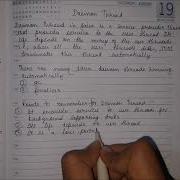 19
Daemon Thread
Daemon Thread in Java is a service provider thread
that provides service to the user thread. Its
life depends on the mercy of the user threads
i.e. when all the user threads dies, JVM
terminates this thread automatically.
There are many java daemon threads running
automatically
gc
finalizer
Points to remember for Daemon Thread
It provides services to user thread for
background supporting tasks.
Its life depends to user thread.
It is a low prior